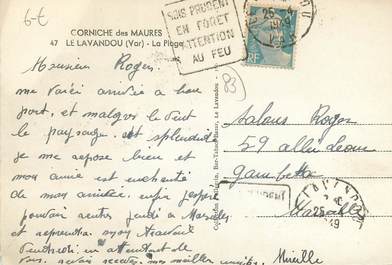 6-t
CORNICHE des MAURES
47 LE LAVANDOU (Var) - La Plage
SOIS PRUDENT
EN FORET
ATTENTION
AU FEU
RF
83
Monsieur Roger
me voici arrivée a bon
port, et malgré le vent
le paysage est splendide
je me repose bien et
mon amie est enchanté
de mon arrivée, enfin j'espère
pouvoir rentrer jeudi a Marseille
et reprendre mon travail
Vendredi en attendant de
vous
Mireille
Salons Roger
59 allée Léon
Gambetta
Marseille